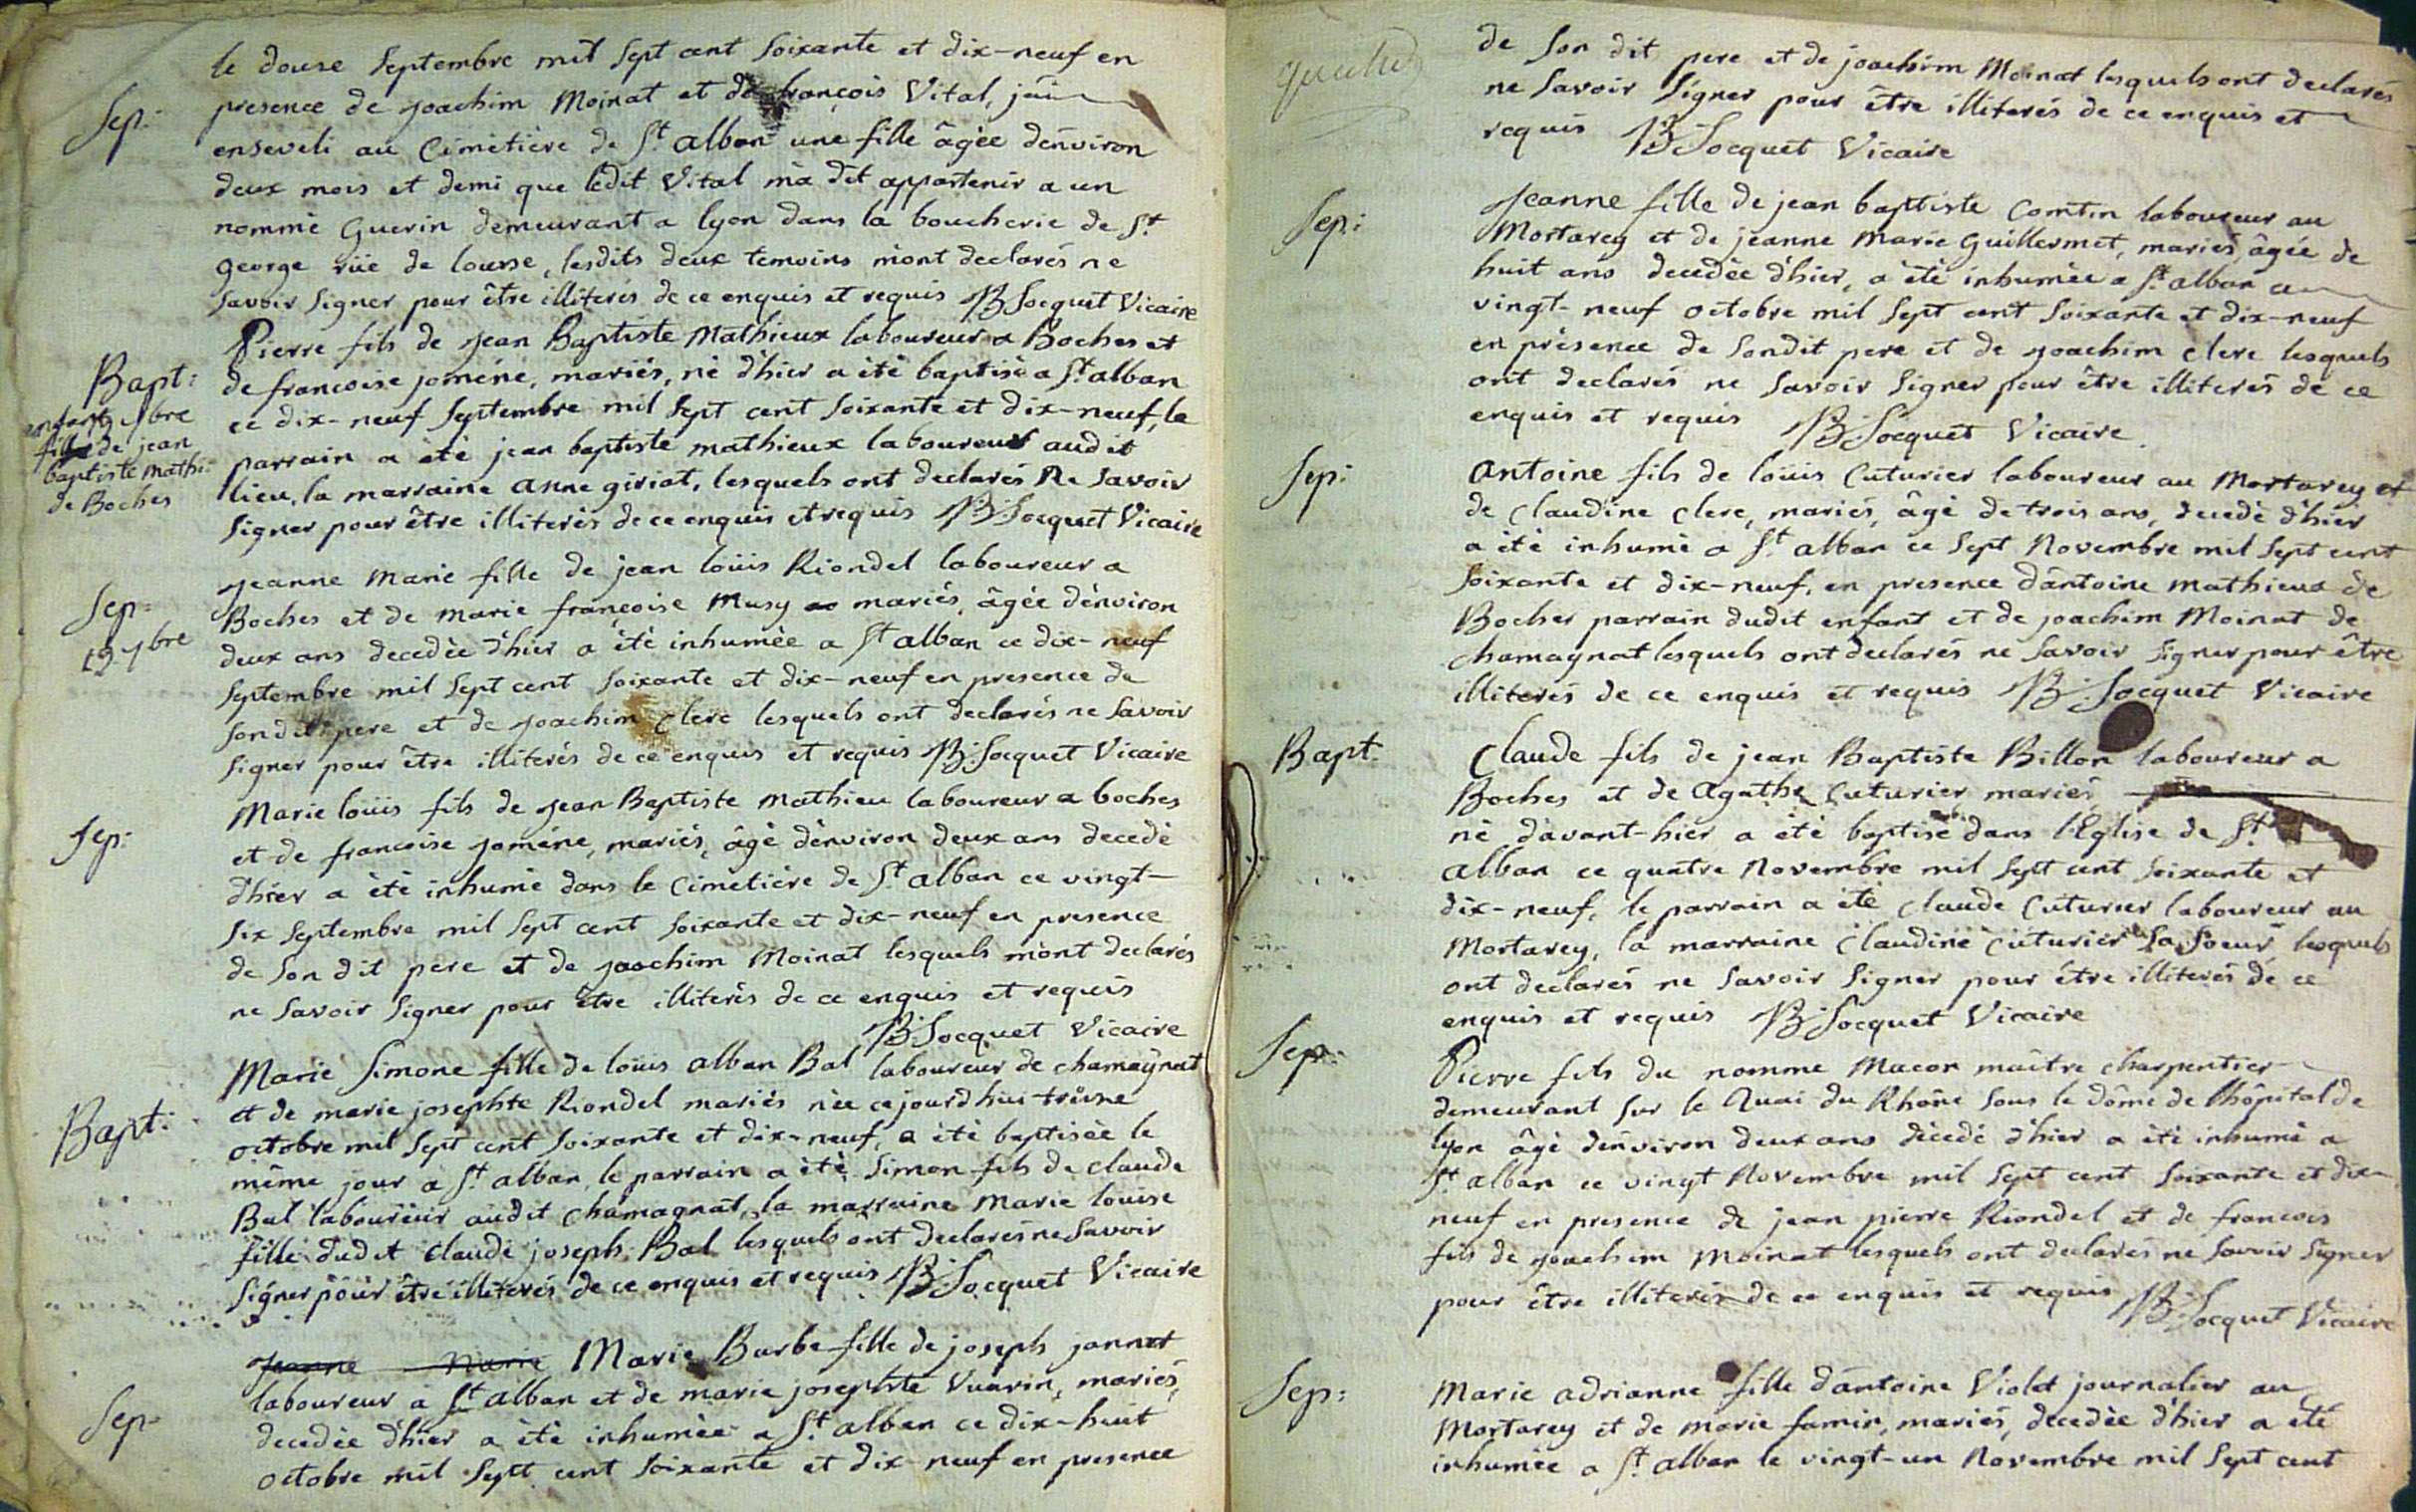 le douse Septembre mil Sept cent Soixante et dix-neuf en
Sep: presence de joachim Moinat et de françois Vital, jai
enseveli au Cimetière de St. alban une fille âgèe denviron
deux mois et demi que ledit Vital ma dit appartenir a un
nommé Guerin demeurant a lyon dans la boucherie de St.
George rüe de lourse, lesdits deux temoins mont declarés ne
Savoir Signer pour être illiterés de ce enquis et requis B. Socquet Vicaire
Bapt: Pierre fils de jean Baptiste Mathieux laboureur a Boches et
de francoise joméne, mariés, né d'hier a été baptisé a St. alban
ce dix-neuf Septembre mil Sept cent Soixante et dix-neuf, le
parrain a été jean baptiste mathieux laboureur audit
lieu, la marraine anne giriat, lesquels ont declarés Ne Savoir
Signer pour être illiterés de ce enquis et requis B. Socquet Vicaire
bre
fille de jean
baptiste mathi:
de Boches
jeanne Marie fille de jean loüis Riondel laboureur a
Sep: Boches et de marie françoise Musy mariés, âgée dénviron
19 7bre deux ans decedèe d'hier a été inhumèe a St alban ce dix-neuf
Septembre mil Sept cent Soixante et dix-neuf en presence de
Sondit pere et de joachim Clerc lesquels ont declarés ne Savoir
Signer pour être illiterés de ce enquis et requis B. Socquet Vicaire
Marie loüis fils de jean Baptiste Mathieu laboureur a boches
Sep: et de francoise joméne, mariés, âgé dénviron deux ans decedé
d'hier a été inhumé dans le Cimetiére de St. alban ce vingt-
Six Septembre mil Sept cent Soixante et dix-neuf en presence
de Son dit pere et de joachim Moinat lesquels mónt declarés
ne Savoir Signer pour être illiterés de ce enquis et requis
B. Socquet Vicaire
Marie Simone fille de loüis alban Bal laboureur de chamagnat
Bapt: et de marie josephte Riondel mariés née cejourdhui treise
octobre mil Sept cent Soixante et dix-neuf, a été baptisèe le
même jour a St. alban, le parrain a été Simon fils de claude
Bal laboureur audit chamagnat, la marraine Marie louise
fille dudit claude joseph Bal lesquels ont declarés ne Savoir
Signer pour être illiterés de ce enquis et requis B. Socquet Vicaire
Jeanne Marie Marie Barbe fille de joseph jannet
laboureur a St alban et de marie josephte Vuarin, mariés,
Sep: decedèe d'hier a été inhumée a St. alban ce dix-huit
octobre mil Sept cent Soixante et dix-neuf en presence
de Son dit pere et de joachim Moinat lesquels ont declarés
ne Savoir Signer pour être illiterés de ce enquis et
requis B. Socquet Vicaire
Sep: Jeanne fille de jean baptiste Comtin laboureur au
Mortarey et de jeanne Marie Guillermet, mariés, âgée de
huit ans decedèe d'hier, a été inhumèe a St. alban ce
vingt-neuf octobre mil Sept cent Soixante et dix-neuf
en présence de Sondit pere et de joachim Clerc lesquels
ont declarés ne Savoir Signer pour être illiterés de ce
enquis et requis B. Socquet Vicaire.
Sep: Antoine fils de loüis Cuturier laboureur au Mortarey et
de Claudine Clerc, mariés, âgé de trois ans, decedé d'hier
a été inhumé a St. alban ce Sept Novembre mil Sept cent
Soixante et dix-neuf, en presence dantoine mathieux de
Boches parrain dudit enfant et de joachim Moinat de
chamagnat lesquels ont declarés ne Savoir Signer pour être
illiterés de ce enquis et requis B. Socquet Vicaire
Bapt. Claude fils de jean Baptiste Billon laboureur a
Boches et de Agathe Cuturier mariés
né davant-hier a été baptisé dans l'Eglise de St.
alban ce quatre Novembre mil Sept cent Soixante et
dix-neuf, le parrain a été Claude Cuturier laboureur au
Mortarey, la marraine Claudine Cuturier Sa Soeur lesquels
ont declarés ne Savoir Signer pour être illiterés de ce
enquis et requis B. Socquet Vicaire
Sep: Pierre fils du nommé Macon maitre charpentier
demeurant Sur le Quai du Rhône Sous le dôme de lhôpital de
lyon âgé denviron deux ans décedé d'hier a été inhumé a
St. alban ce vingt Novembre mil Sept cent Soixante et dix-
neuf en presence de jean pierre Riondel et de francois
fils de joachim Moinat lesquels ont declarés ne Savoir Signer
pour être illiterés de ce enquis et requis B. Socquet Vicaire
Sep: Marie adrianne fille dantoine Violet journalier au
Mortarey et de marie famin, mariés, decedèe d'hier a été
inhumèe a St. alban le vingt-un Novembre mil Sept cent